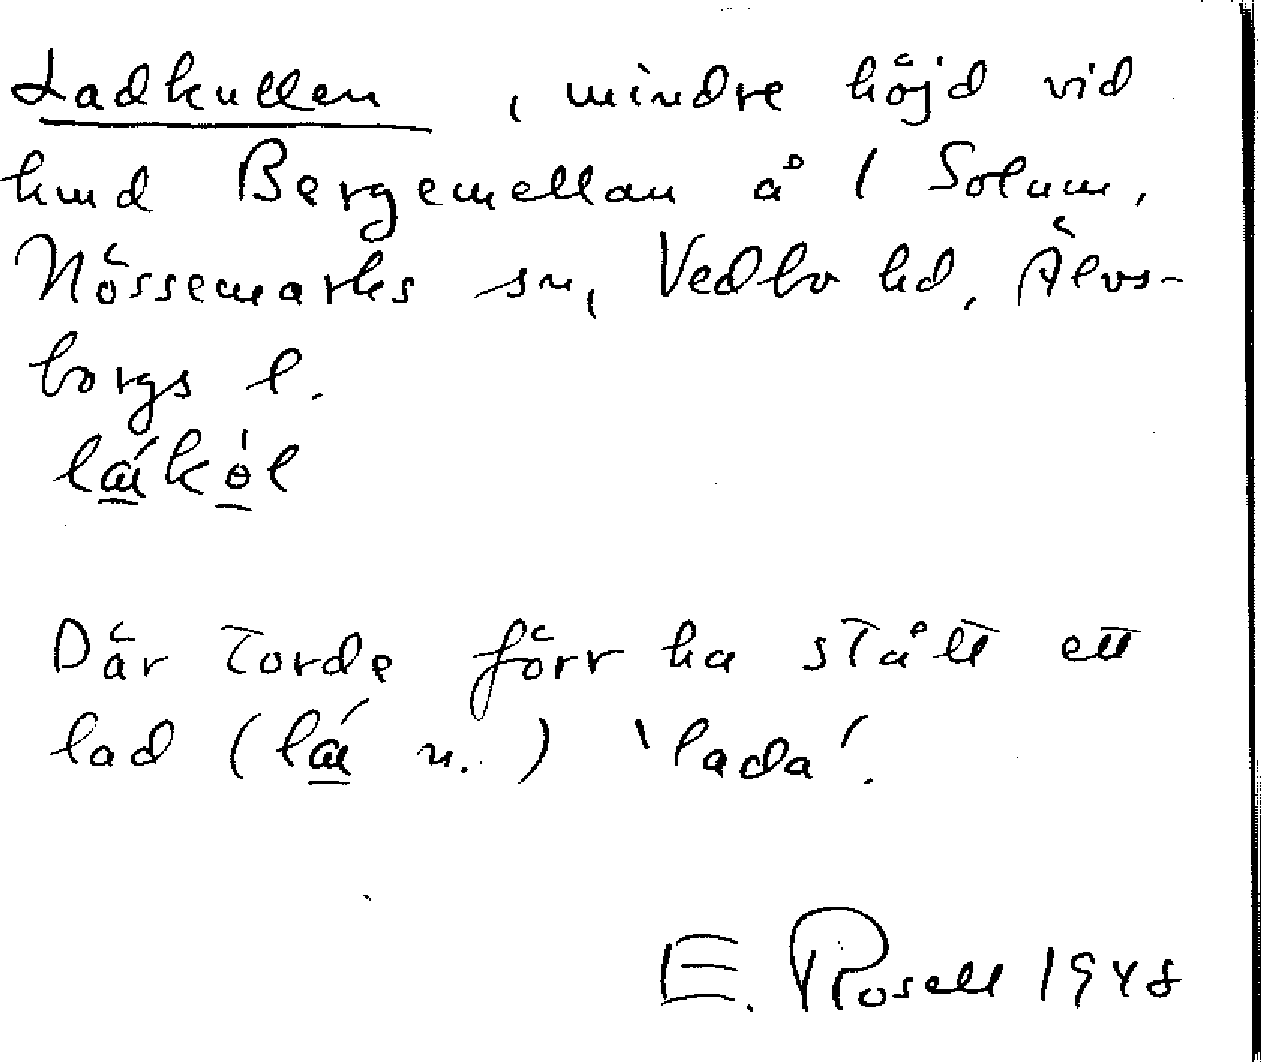 Ladkullen, mindre höjd vid
hmd Bergemellan å 1 Solum,
Nössemarks sn, Vedbo hd, Älvs-
borgs l.
lákòl
Där torde förr ha stått ett
lad (lá n.) 'lada'.
E. Rosell 1948